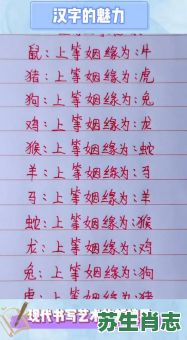 汉字的魅力
鼠:上等姻缘为:牛
猪:上等姻缘为:虎
狗:上等姻缘为:兔
鸡:上等姻缘为:龙
猴:上等姻缘为:蛇
羊:上等姻缘为:马
马:上等姻缘为:羊
蛇:上等姻缘为:猴
龙:上等姻缘为:鸡
兔:上等姻缘为:狗
虎:上等姻缘为:猪
现代书写艺术
苏生肖志